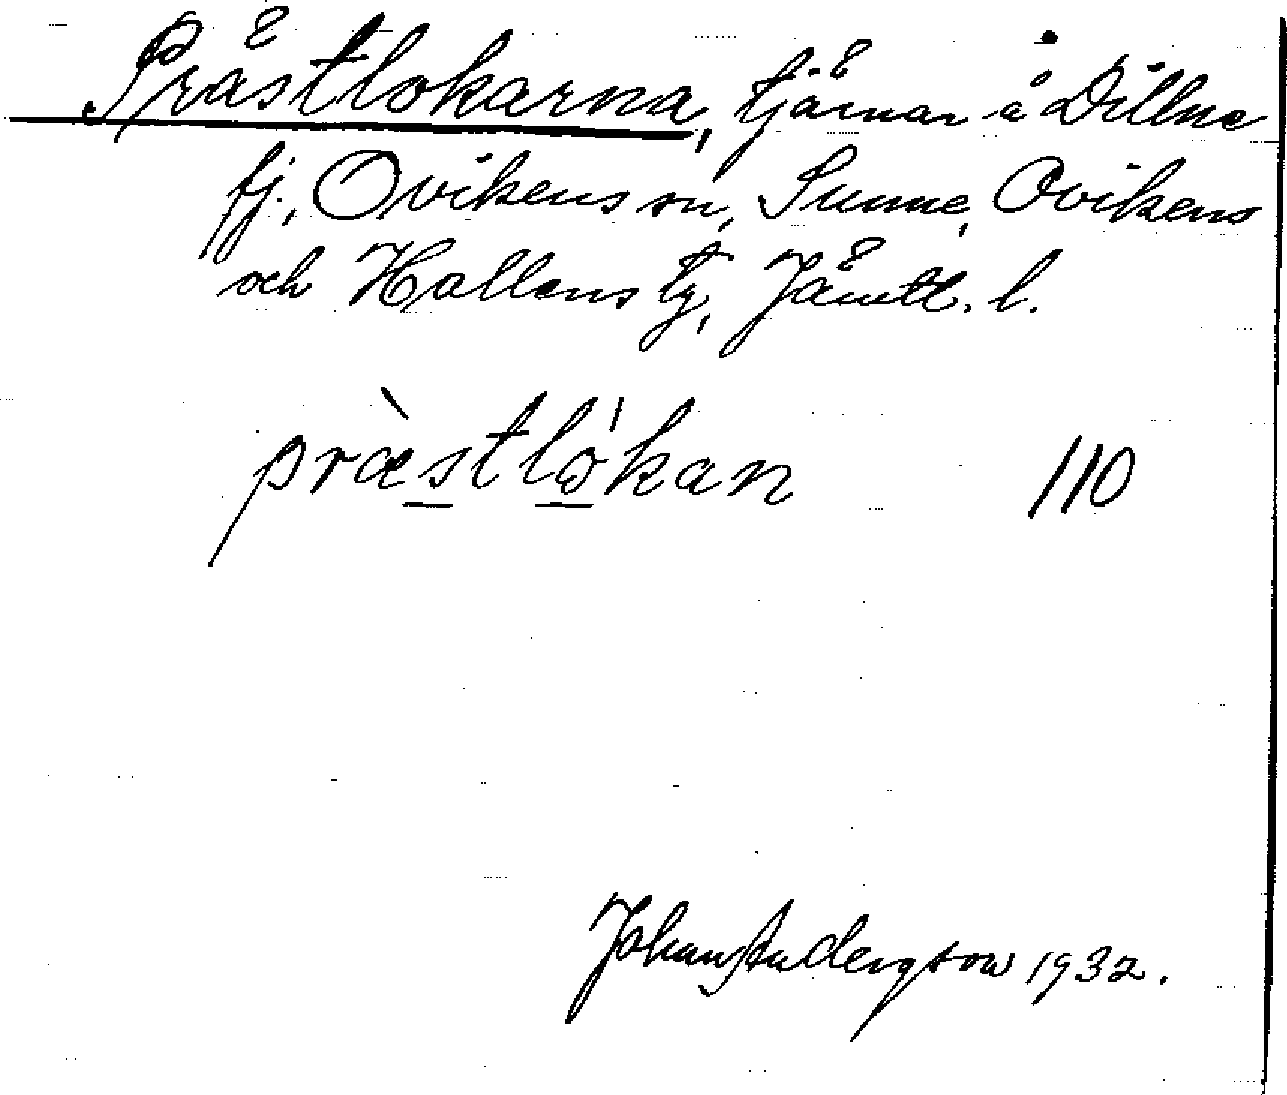 Prästlokarna, tjärnar å Dillne
fj., Ovikens sn, Sunne, Ovikens
och Hallens tg, Jämtl. l.
præ̀stlǫ́kan 110
Johan Andersson 1932.